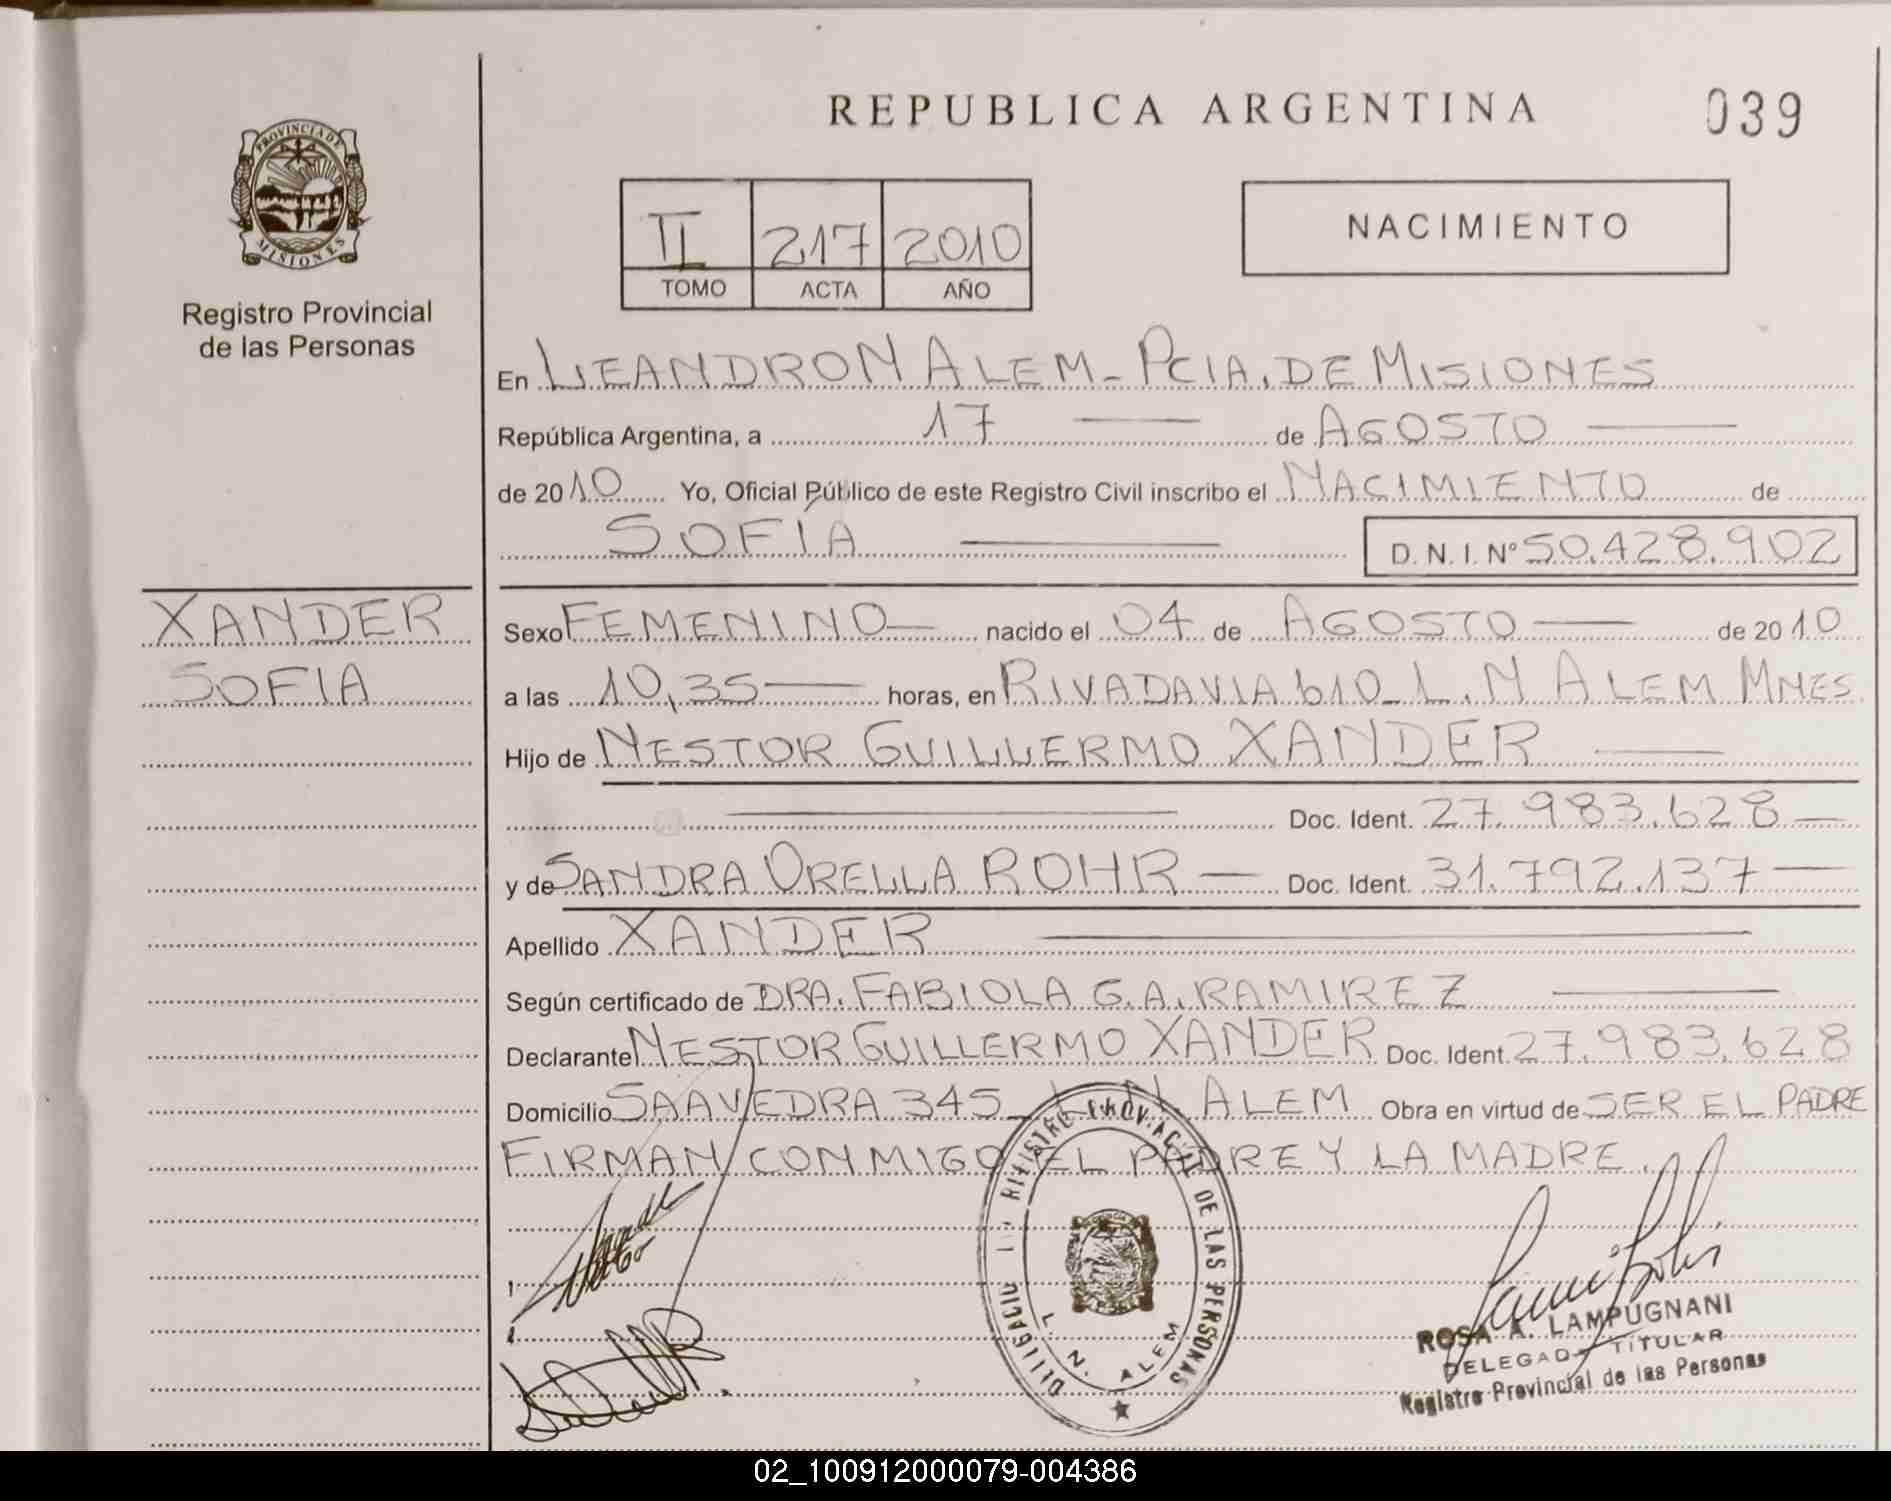 REPUBLICA ARGENTINA
039
PROVINCIA DE
MISIONES
Registro Provincial
de las Personas
II 217 2010
TOMO ACTA AÑO
NACIMIENTO
En LEANDRO N ALEM - PCIA. DE MISIONES
República Argentina, a 17 de AGOSTO
de 2010 Yo, Oficial Público de este Registro Civil inscribo el NACIMIENTO de
SOFÍA D.N.I. Nº 50.428.902
XANDER
SOFIA
Sexo FEMENINO nacido el 04 de AGOSTO de 2010
a las 10,35 horas, en RIVADAVIA 610 - L. N ALEM MNES.
Hijo de NESTOR GUILLERMO XANDER
Doc. Ident. 27.983.628
y de SANDRA ORELLA ROHR Doc. Ident. 31.792.137
Apellido XANDER
Según certificado de DRA. FABIOLA G.A. RAMIREZ
Declarante NESTOR GUILLERMO XANDER Doc. Ident. 27.983.628
Domicilio SAAVEDRA 345 - L. N. ALEM Obra en virtud de SER EL PADRE
FIRMAN CONMIGO EL PADRE Y LA MADRE.
DE LAS PERSONAS
L. N. ALEM
ROSA A. LAMPUGNANI
DELEGADA TITULAR
Registro Provincial de las Personas
02_100912000079-004386